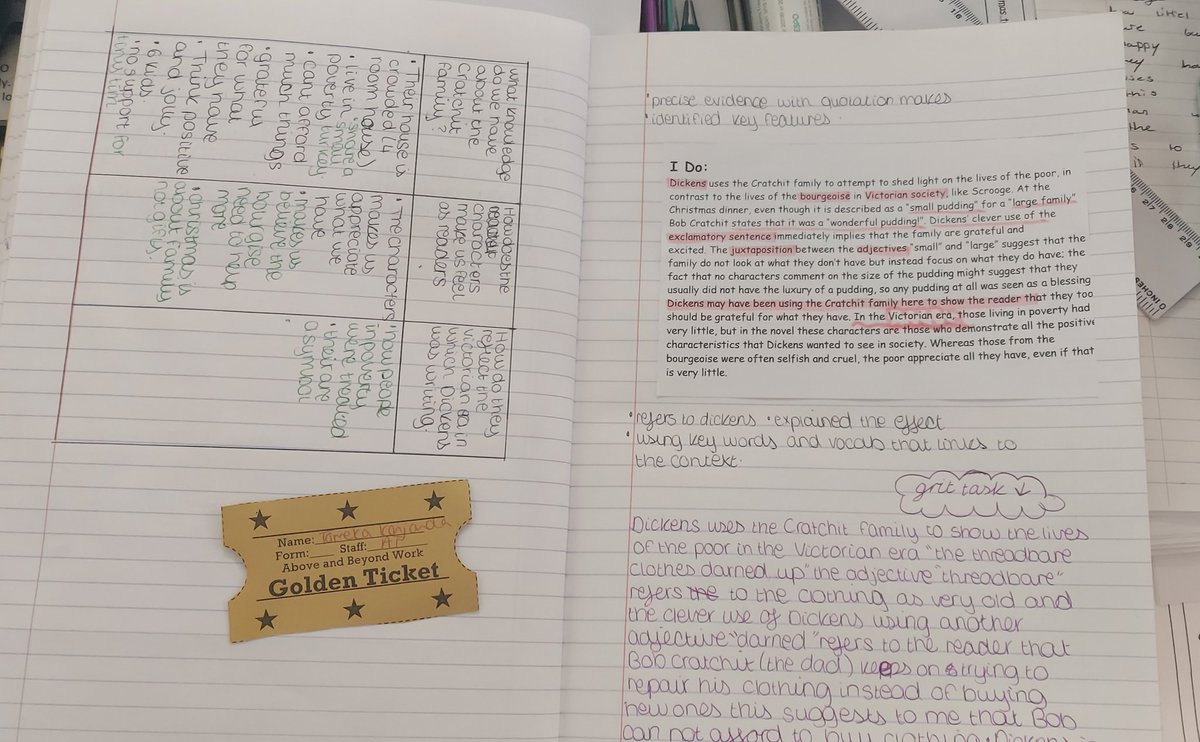 what knowledge
do we have
about the
Cratchit
family?
• Their house is
crowded (4
room house)
• live in "share a
poverty small
turkey"
• cant afford
much things
• grateful
for what
they have
• Think positive
and jolly.
• 6 kids.
no support for
tiny tim
How do the
characters
make us feel
as readers
• The characters
makes us
apreciate
what we
have
• makes us
believe the
bourgise
need to help
more
• christmas is
about family
not gifts.
How do they
reflect the
victorian era in
which Dickens
was writing.
• how people
in poverty
were treated
• their are
a symbol
Name: 
Form: Staff: AP
Above and Beyond Work
Golden Ticket
• precise evidence with quotation makes
• identified key features.
I Do:
Dickens uses the Cratchit family to attempt to shed light on the lives of the poor, in
contrast to the lives of the bourgeoise in Victorian society, like Scrooge. At the
Christmas dinner, even though it is described as a "small pudding" for a "large family"
Bob Cratchit states that it was a "wonderful pudding!". Dickens' clever use of the
exclamatory sentence immediately implies that the family are grateful and
excited. The juxtaposition between the adjectives "small" and "large" suggest that the
family do not look at what they don't have but instead focus on what they do have; the
fact that no characters comment on the size of the pudding might suggest that they
usually did not have the luxury of a pudding, so any pudding at all was seen as a blessing
Dickens may have been using the Cratchit family here to show the reader that they too
should be grateful for what they have. In the Victorian era, those living in poverty had
very little, but in the novel these characters are those who demonstrate all the positive
characteristics that Dickens wanted to see in society. Whereas those from the
bourgeoise were often selfish and cruel, the poor appreciate all they have, even if that
is very little.
• refers to dickens • explained the effect
• using key words and vocab that links to
the context.
grit task ↓
Dickens uses the Cratchit family to show the lives
of the poor in the Victorian era "the threadbare
clothes darned up" the adjective "threadbare"
refers to the clothing as very old and
the clever use of Dickens using another
adjective "darned" refers to the reader that
Bob Cratchit (the dad) keeps on trying to
repair his clothing instead of buying
new ones this suggests to me that Bob
can not afford to buy clothing. Dickens